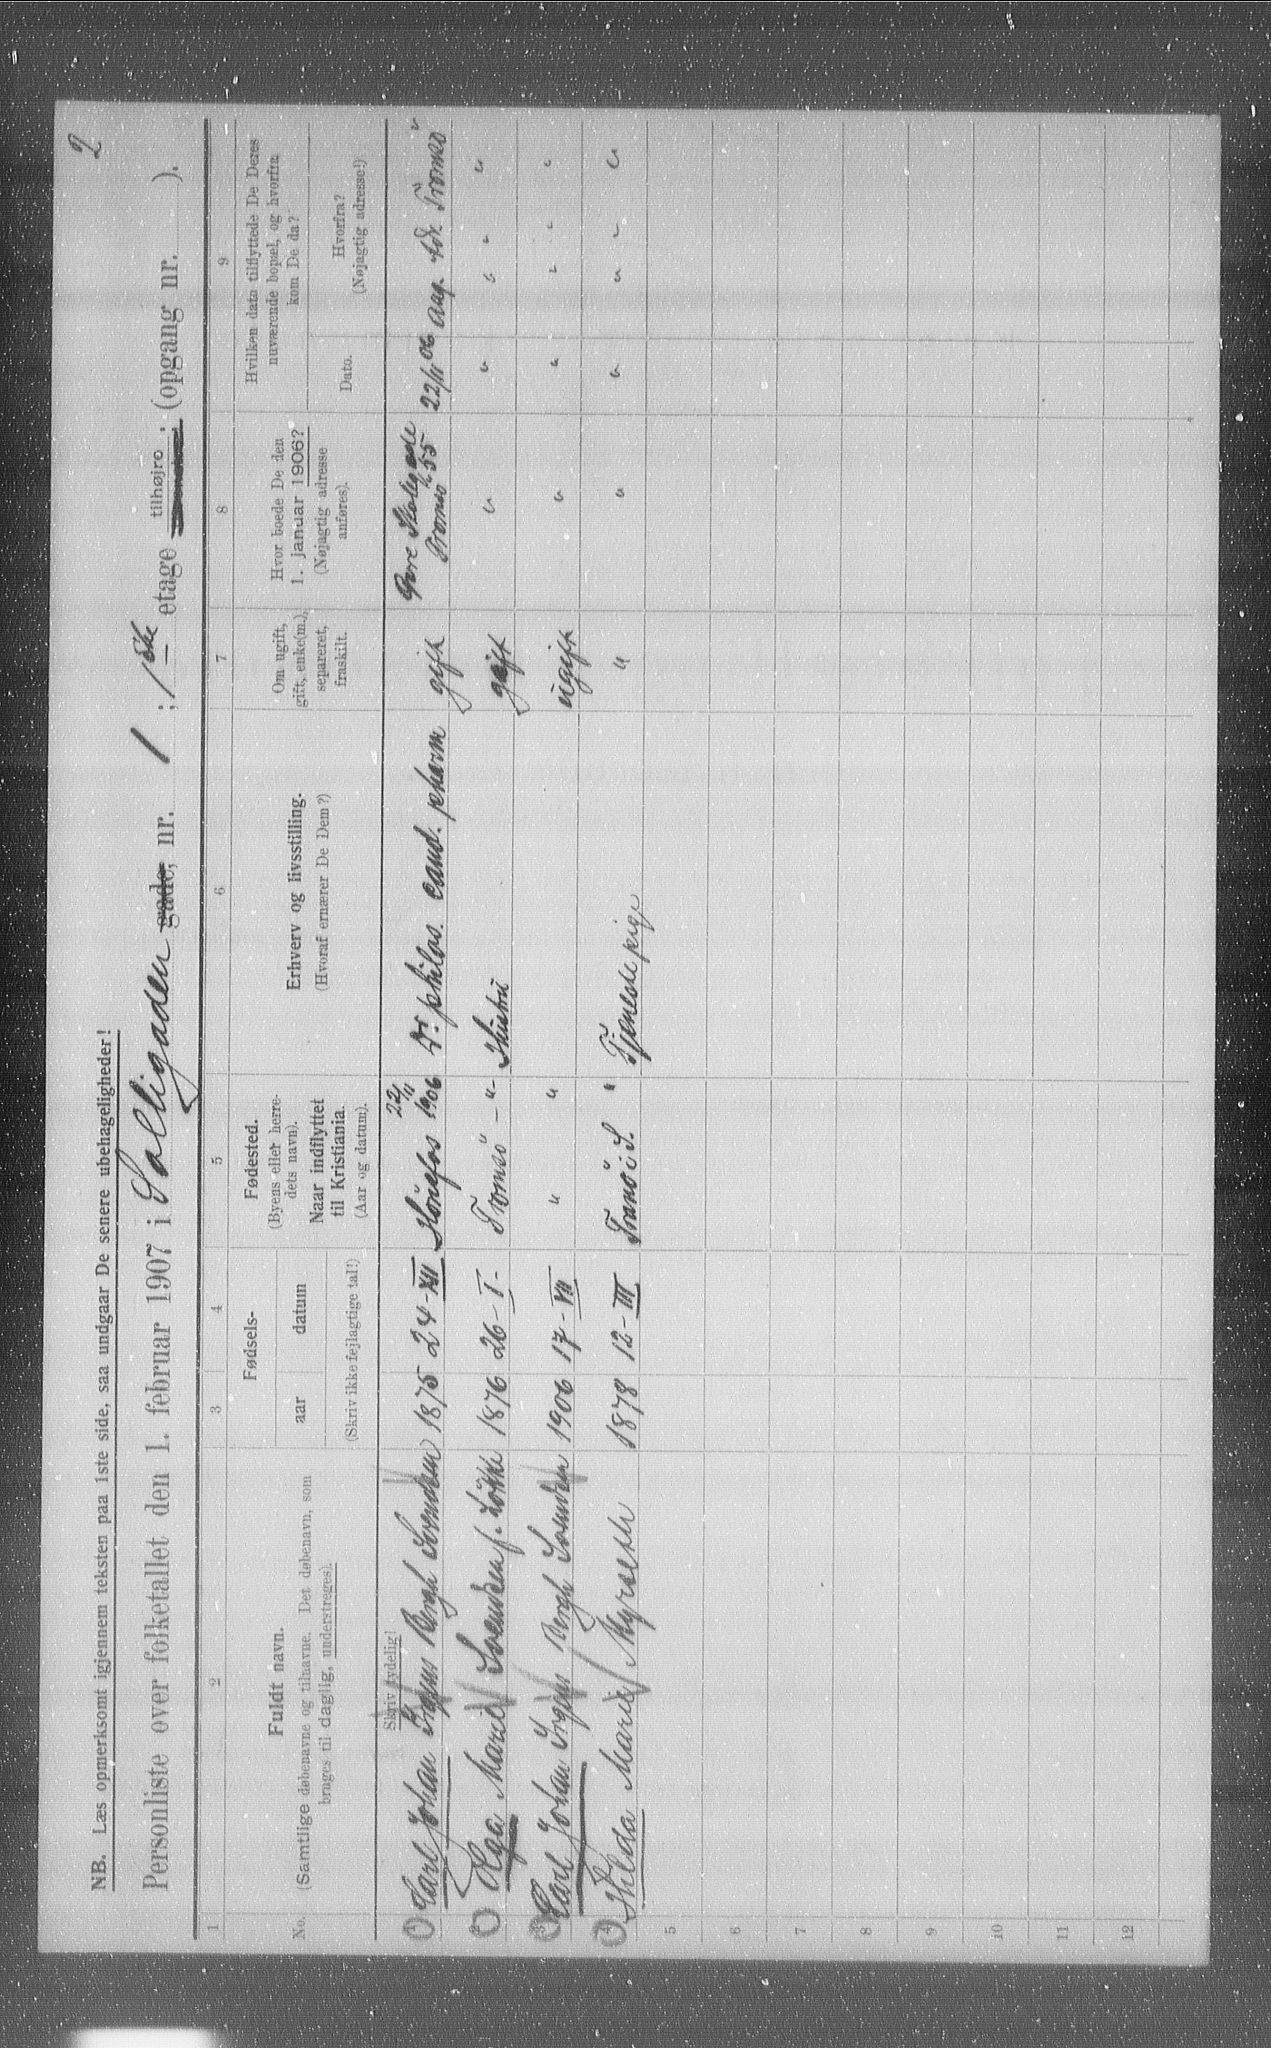 2
NB. Læs opmerksomt igjennem teksten paa 1ste side, saa undgaar De senere ubehageligheder!
Personliste over folketallet den 1. februar 1907 i Solligaden gade, nr. 1 ; 1ste etage tilhøjre; (opgang nr. ).
1 2 3 4 5 6 7 8 9
No. Fuldt navn. (Samtlige døbenavne og tilnavne. Det døbenavn, som bruges til daglig, understreges).
Fødsels-
aar datum
(Skriv ikke fejlagtige tal!)
Fødested. (Byens eller herredets navn). Naar indflyttet til Kristiania. (Aar og datum).
Erhverv og livsstilling. (Hvoraf ernærer De Dem?)
Om ugift, gift, enke(m.), separeret, fraskilt.
Hvor boede De den 1. januar 1906? (Nøjagtig adresse anføres).
Hvilken dato tilflyttede De Deres nuværende bopæl, og hvorfra kom De da?
Dato. Hvorfra? (Nøjagtig adresse!)
Skriv tydelig!
1 Carl Johan Bergh Svendsen 1875 24-XII Hönefos 22/11 1906 Dr. philos. cand. pharm gift Skolegade Tromsö 55 22/11 06 Tromsö
2 Olga Marie Svendsen f. 1876 26-I- Tromsö - " - Hustru gift " " " " "
3 Carl Johan Bergh Svendsen 1906 17-VII " " ugift " " " " "
4 Hilda Marie Myrseth 1878 12-III Tranö i S. " Tjenestepige " " " " " "
5
6
7
8
9
10
11
12